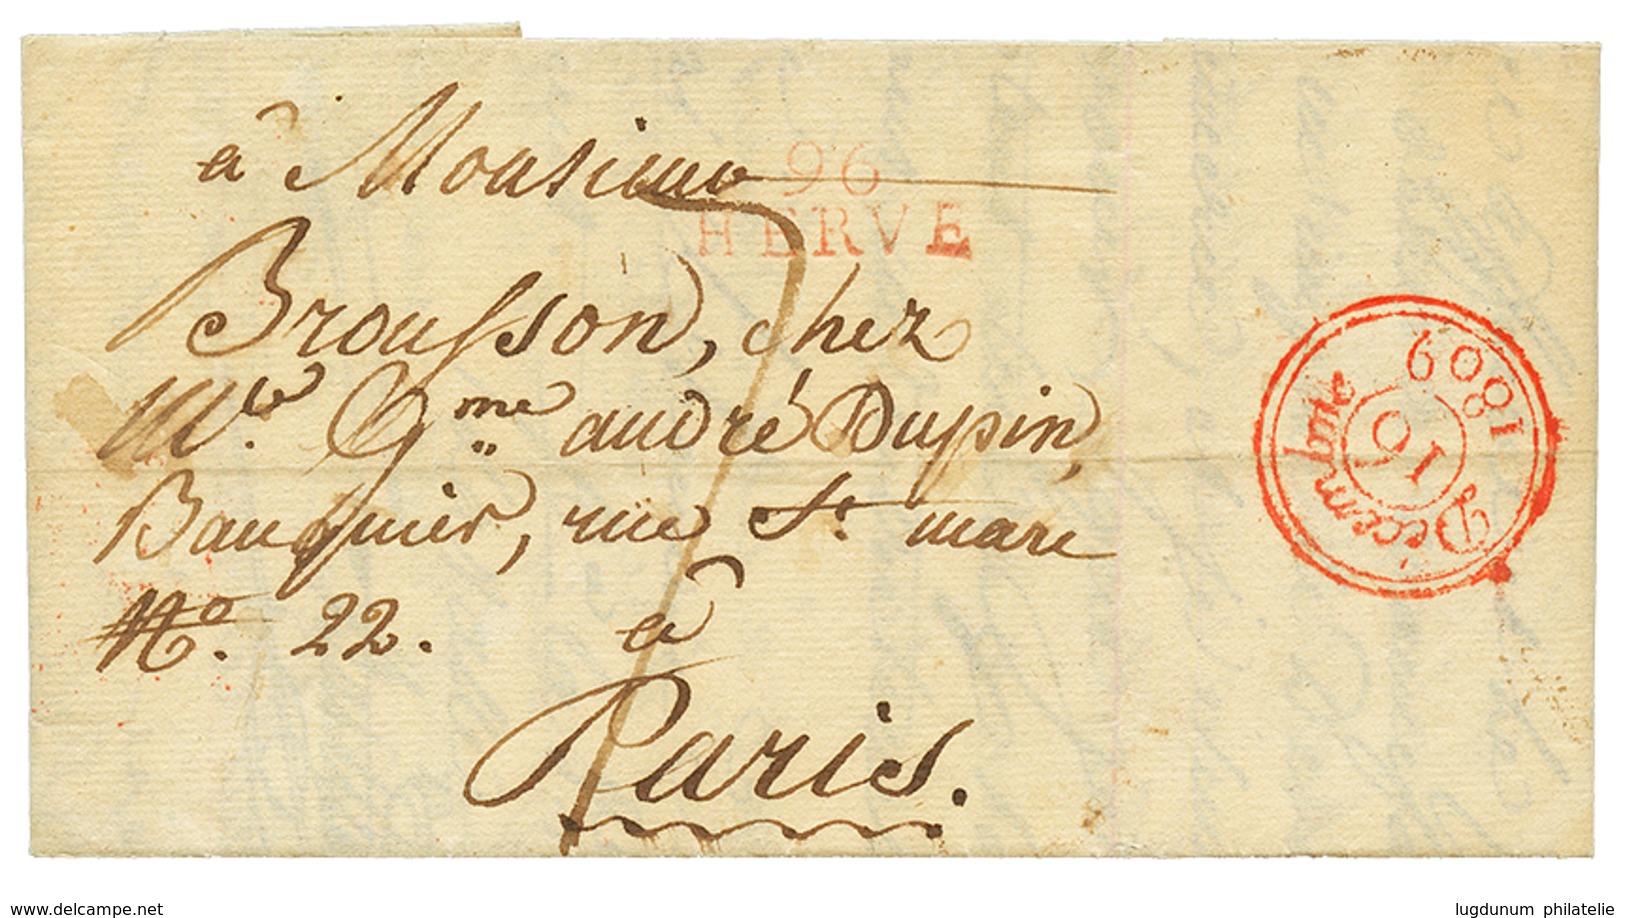 à Monsieur
96
HERVE
Brousson, chez
Mr. Gme. andré Dupin,
Banquier, rue St marc
No. 22. à
Paris.
Décembre
16
1809
www.delcampe.net
lugdunum philatelie